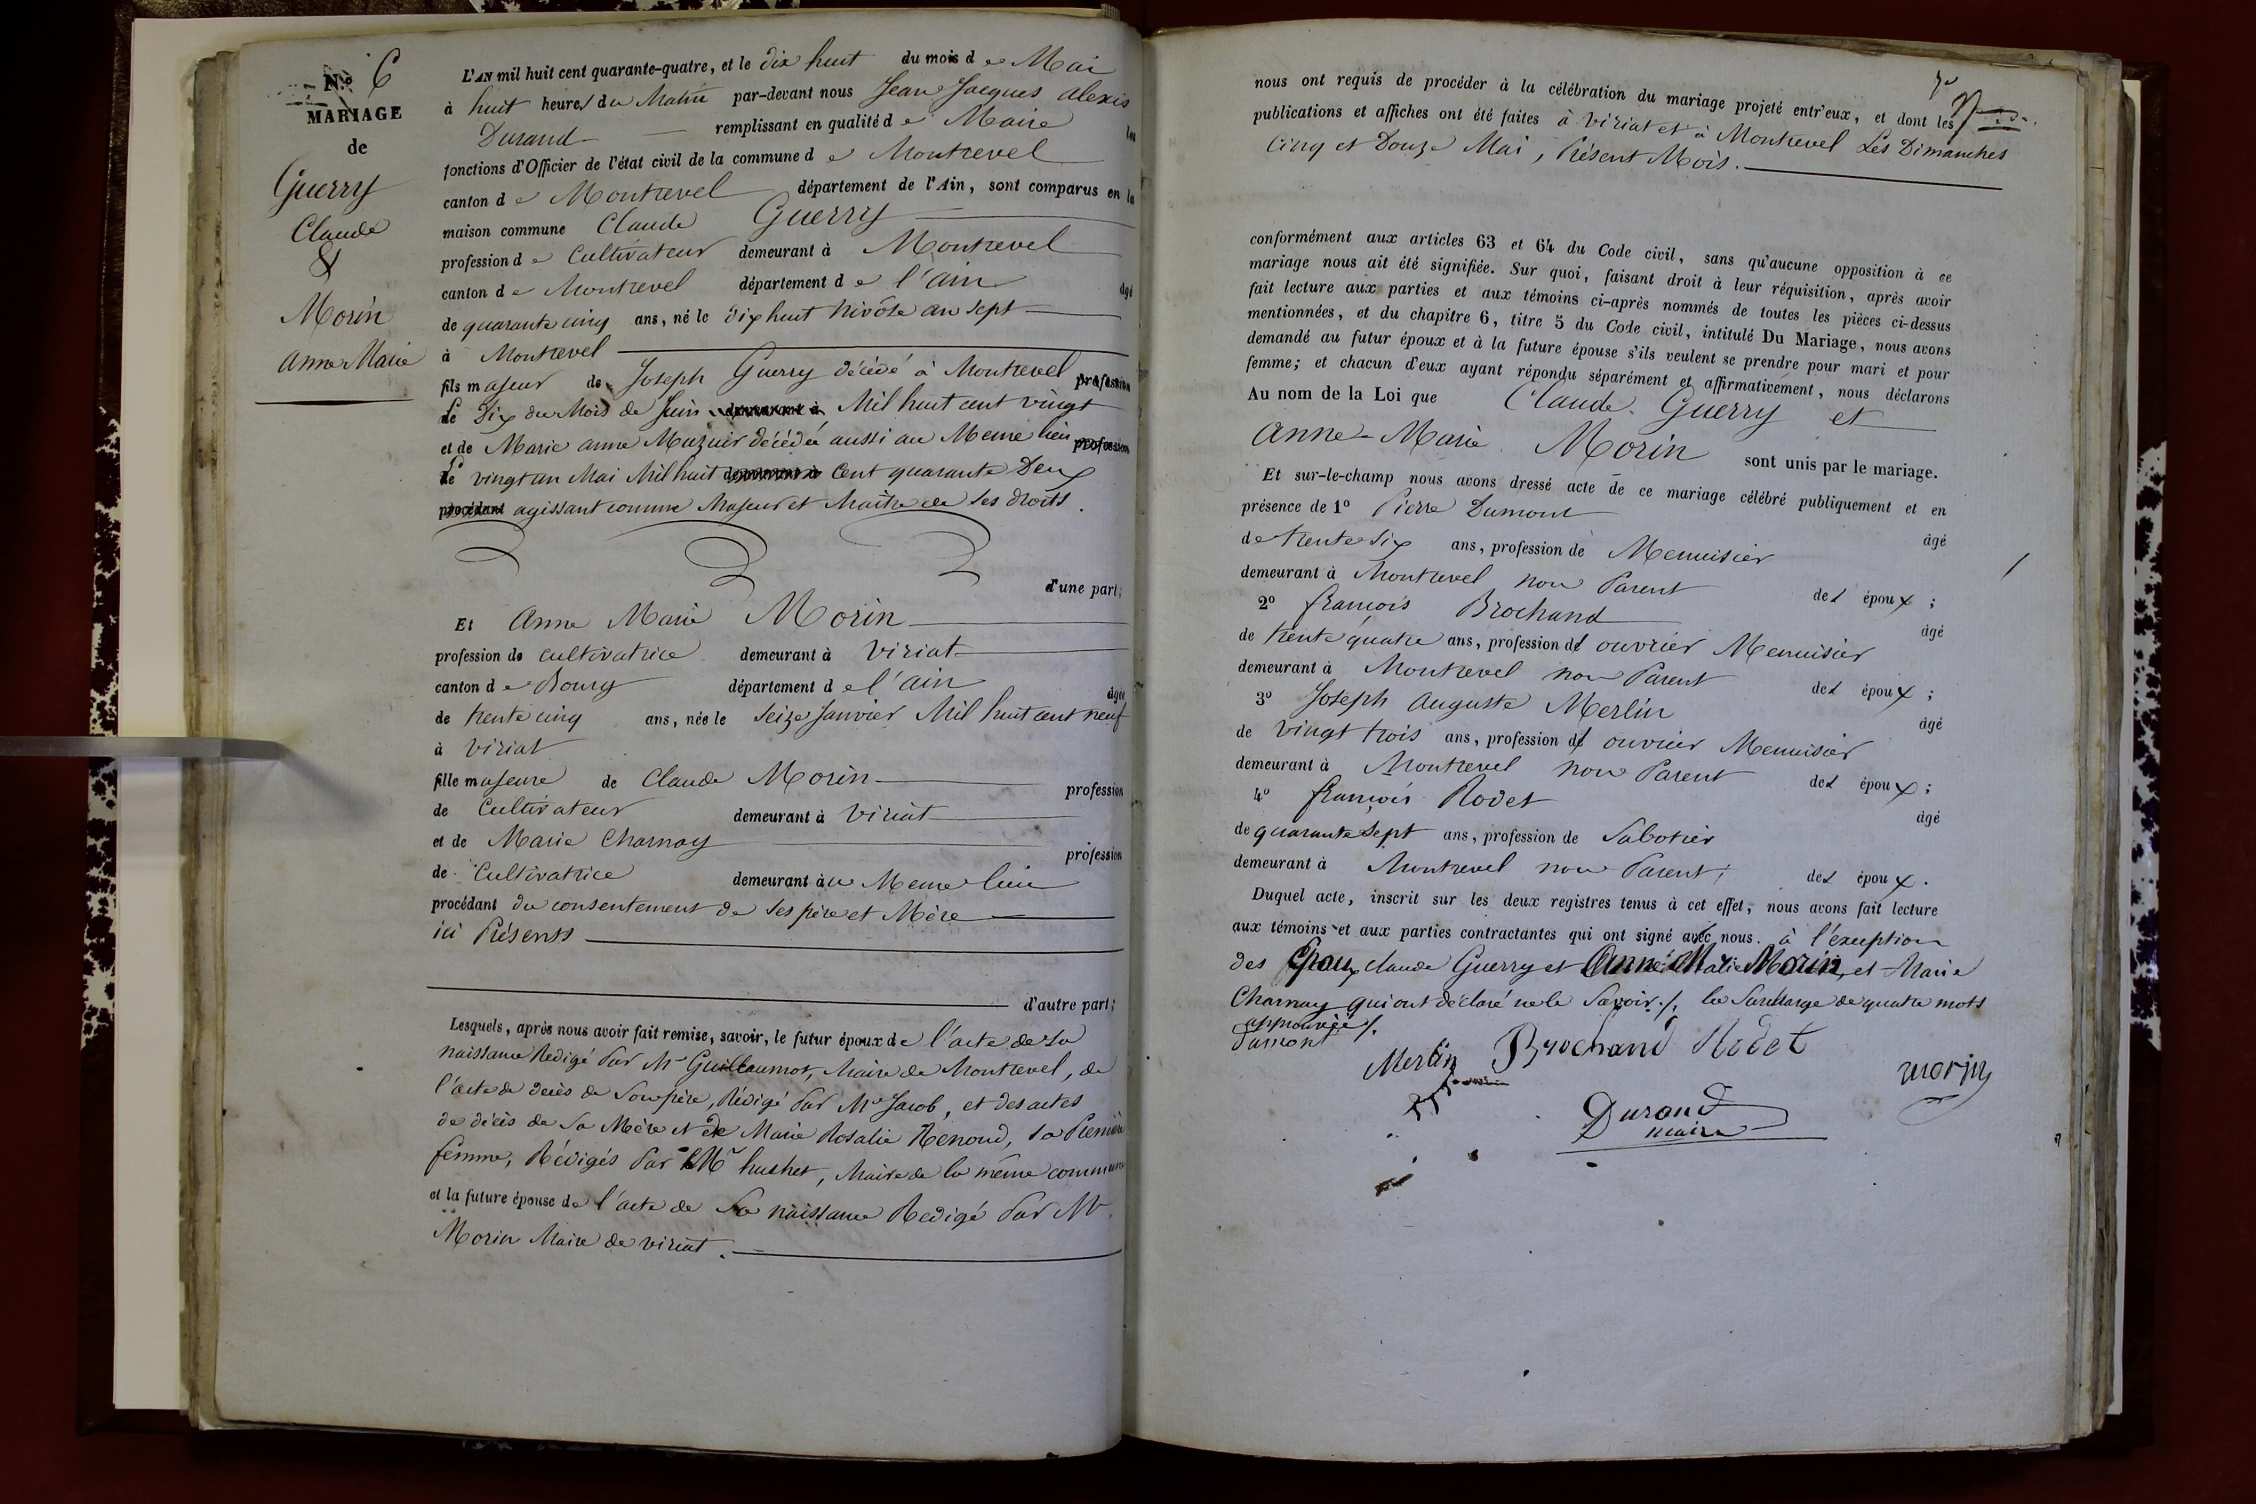 N.º 6
MARIAGE
de
Guerry
Claude
&
Morin
Anne Marie
L'AN mil huit cent quarante-quatre, et le dix huit du mois de Mai
à huit heures du Matin par-devant nous Jean Jacques Alexis
Durand remplissant en qualité de Maire les
fonctions d'Officier de l'état civil de la commune de Montrevel
canton de Montrevel département de l'Ain, sont comparus en la
maison commune Claude Guerry
profession de Cultivateur demeurant à Montrevel
canton de Montrevel département de l'ain âgé
de quarante cinq ans, né le dix huit nivôse an sept
à Montrevel
fils majeur de Joseph Guerry décédé à Montrevel profession
le dix du Mois de Juin demeurant à Mil huit cent vingt
et de Marie anne Muzuir décédée aussi au Meme lieu profession
le vingt un Mai Mil huit demeurant à Cent quarante Deux
procédant agissant comme Majeur et Maître de ses droits.
d'une part;
Et Anne Marie Morin
profession de cultivatrice demeurant à viriat
canton de Bourg département de l'ain âgée
de trente cinq ans, née le seize Janvier Mil huit cent neuf
à viriat
fille majeure de Claude Morin profession
de Cultivateur demeurant à viriat
et de Marie Charnay profession
de Cultivatrice demeurant au Meme lieu
procédant du consentement de ses père et Mère
ici Présents
d'autre part;
Lesquels, après nous avoir fait remise, savoir, le futur époux de l'acte de sa
naissance Redigé Par Mr Guillaumot, Maire de Montrevel, de
l'acte de decès de Son père, Rédigé Par Mr Jacob, et des actes
de décès de Sa Mère et de Marie Rosalie Rénoud, sa Première
femme, Rédigés Par Mr huchet, Maire de la même commune
et la future épouse de l'acte de Sa naissance Redigé Par Mr
Morin Maire de viriat.
nous ont requis de procéder à la célébration du mariage projeté entr'eux, et dont les
publications et affiches ont été faites à viriat et à Montrevel Les Dimanches
Cinq et Douze Mai, Présent Mois.
conformément aux articles 63 et 64 du Code civil, sans qu'aucune opposition à ce
mariage nous ait été signifiée. Sur quoi, faisant droit à leur réquisition, après avoir
fait lecture aux parties et aux témoins ci-après nommés de toutes les pièces ci-dessus
mentionnées, et du chapitre 6, titre 5 du Code civil, intitulé Du Mariage, nous avons
demandé au futur époux et à la future épouse s'ils veulent se prendre pour mari et pour
femme; et chacun d'eux ayant répondu séparément et affirmativement, nous déclarons
Au nom de la Loi que Claude Guerry et
Anne-Marie Morin sont unis par le mariage.
Et sur-le-champ nous avons dressé acte de ce mariage célébré publiquement et en
présence de 1º Pierre Dumont âgé
de trente six ans, profession de Menuisier
demeurant à Montrevel non Parent des époux;
2º françois Brochand âgé
de trente quatre ans, profession d ouvrier Menuisier
demeurant à Montrevel non Parent des époux;
3º Joseph Auguste Merlin âgé
de vingt trois ans, profession d ouvrier Menuisier
demeurant à Montrevel non Parent des époux;
4º françois Rodet âgé
de quarante sept ans, profession de Sabotier
demeurant à Montrevel non Parent, des époux.
Duquel acte, inscrit sur les deux registres tenus à cet effet, nous avons fait lecture
aux témoins et aux parties contractantes qui ont signé avec nous. à l'exception
des Epoux Claude Guerry et Anne Marie Morin, et Marie
Charnay qui ont déclaré ne le Savoir./. la Surcharge de quatre mots
approuvée/.
Dumont
Merlin Brochand Rodet morin
Durand
maire